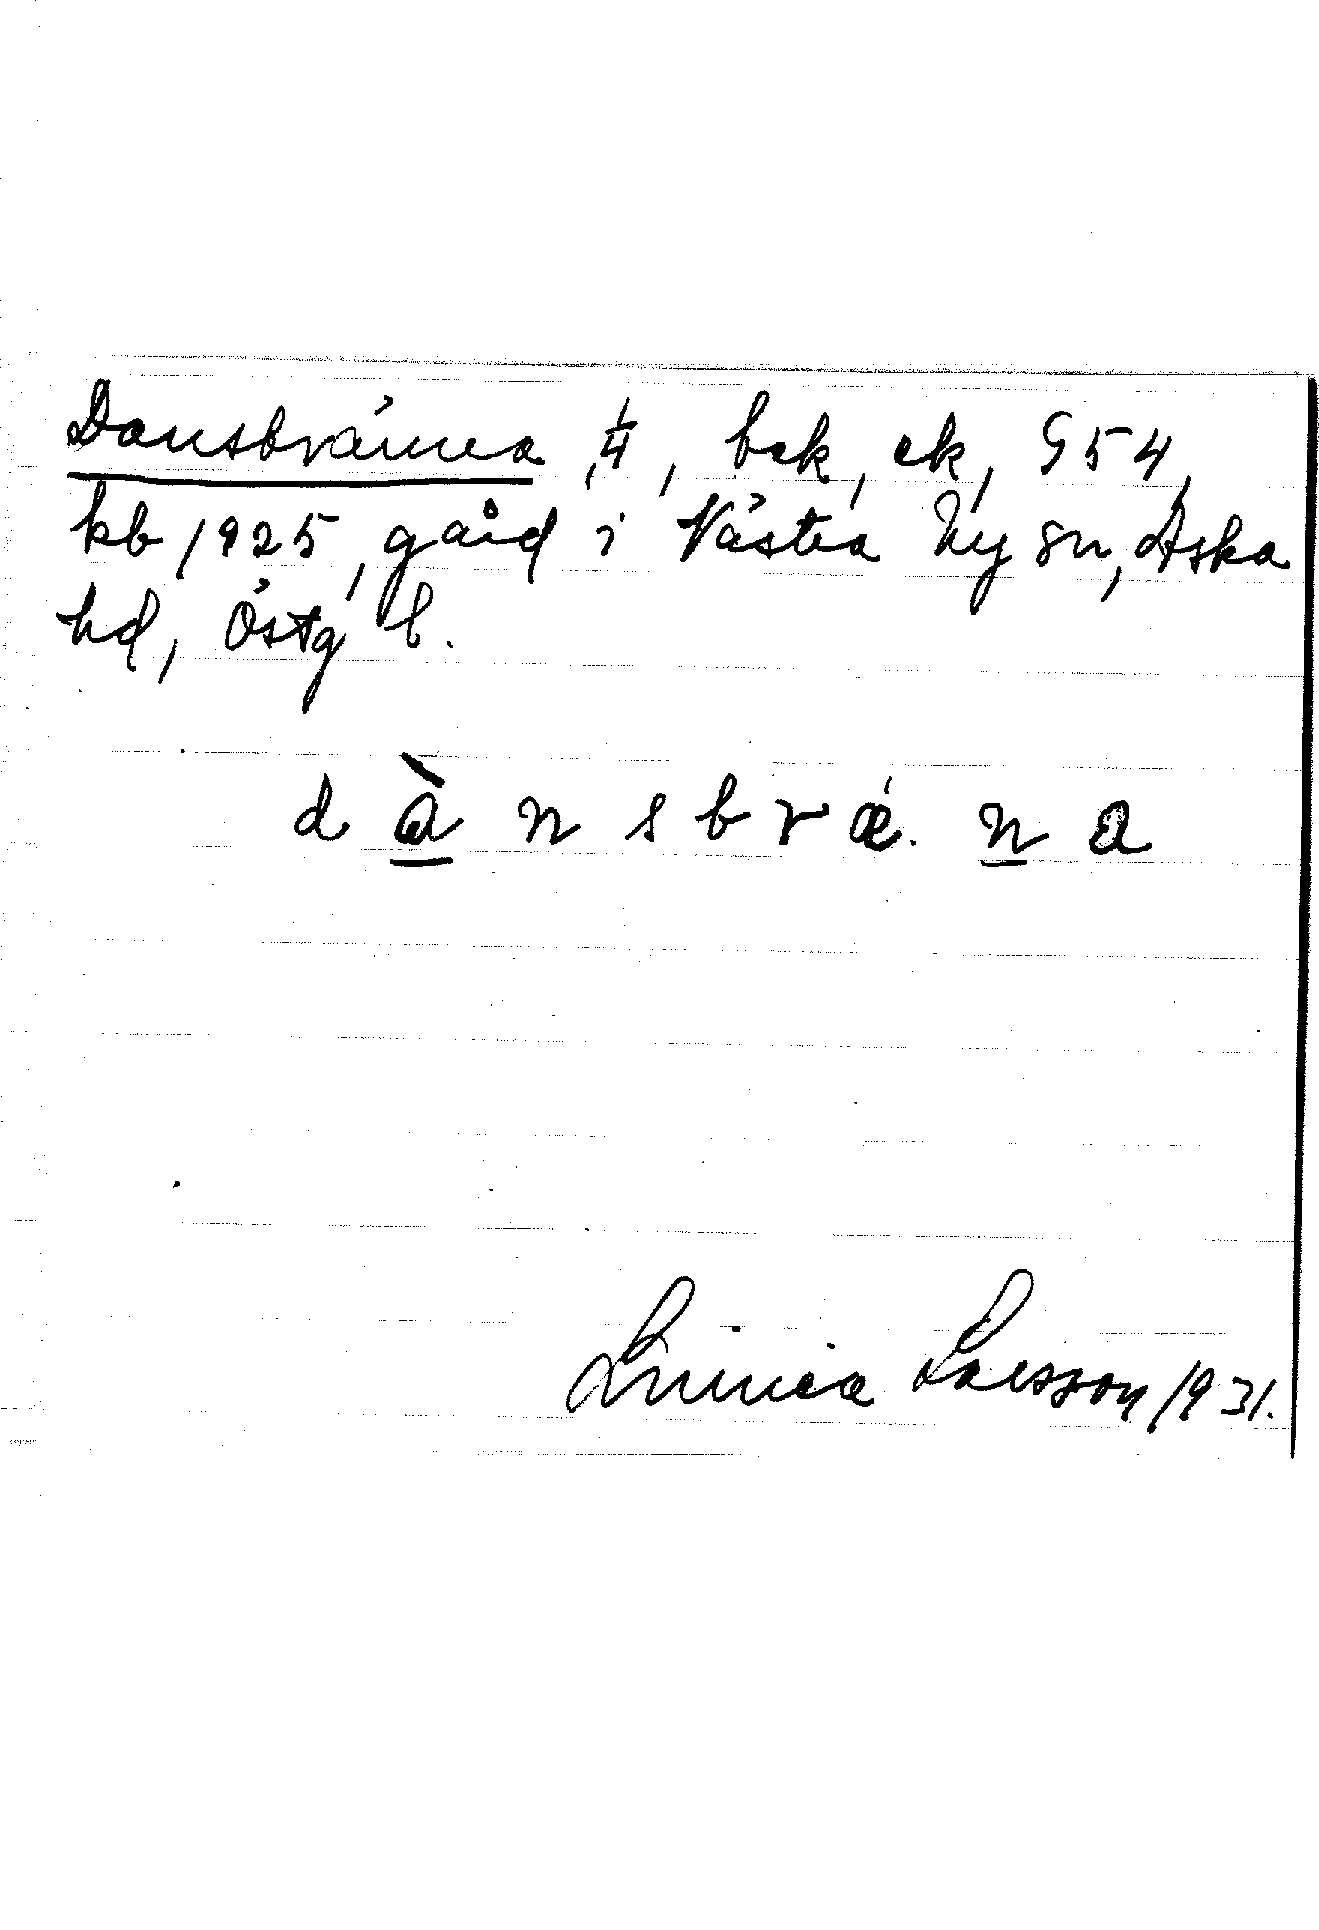 Dansbränna, 1/4, bek, ek, G54,
kb 1925, gård i Västra Ny sn, Aska
hd, Östg l.
d à n s b r ǽ. n a
Linnea Larsson 1931.